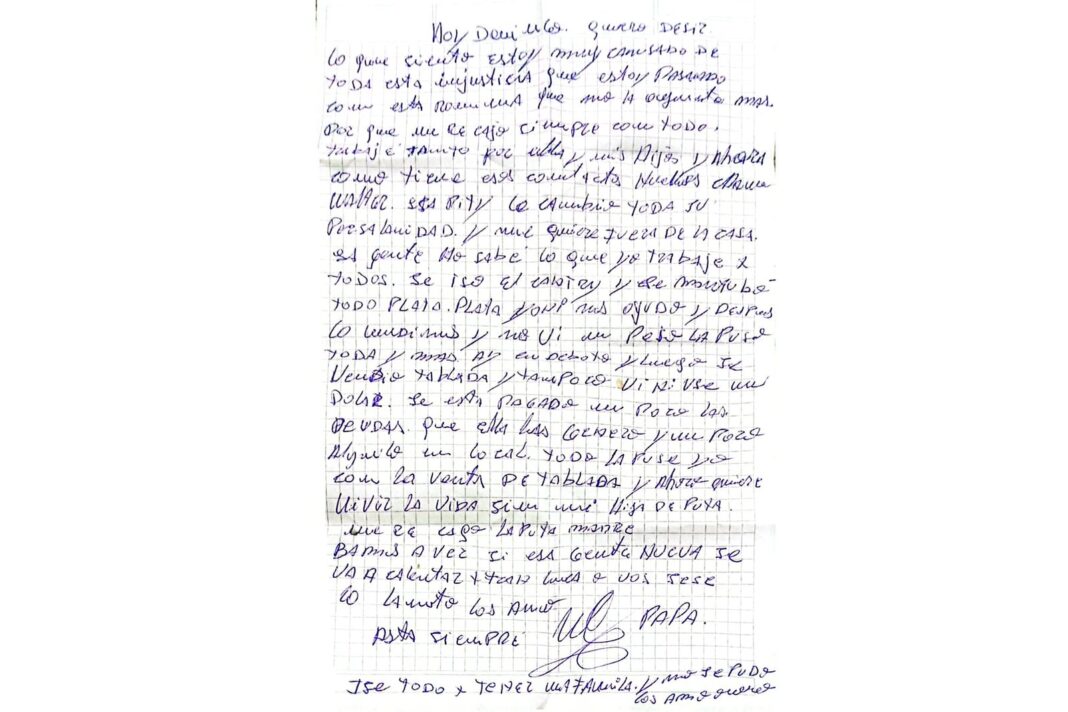 Hoy Domingo. quiero desir
lo que siento estoy muy cansado de
toda esta injusticia que estoy pasando
con esta que no la aguanto mas.
Por que me re cajo siempre con todo.
trabaje tanto por ella y mis Hijos y Ahora
como tiene esos contactos Nuevos
Walter. esa Pity le cambio toda su
Persalanidad. y me quiere fuera de la casa.
esa gente no sabe lo que yo trabaje x
todos. se iso el y se
todo Plata. Plata y nos ayudo y despues
lo vendimos y no vi un Peso la Puse
toda y mas. en y luego se
Vendio tablada y tampoco vi ni use un
Dolar. se esta Pagado un Poco las
deudas. que ella las Genero y un Poco
Alquilo un local. todo la Puse yo
con la venta De tablada y Ahora quiere
Vivir la vida sin mi Hija de Puta.
me re cago la Puta madre
Bamos a ver si esa Gente Nueva se
va a calentar x o vos sese
lo lamento los Amo
Asta siempre
PAPA.
Ise todo x tener una Familia. y no se Pudo
los Amo